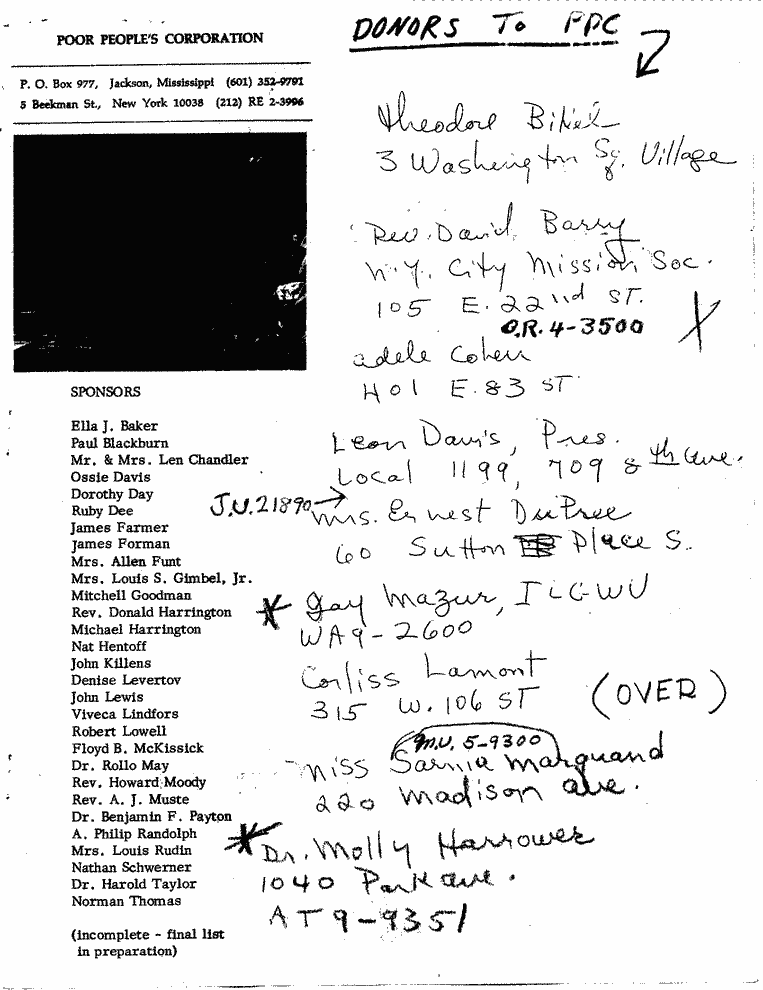 POOR PEOPLE'S CORPORATION
P. O. Box 977, Jackson, Mississippi (601) 352-9791
5 Beekman St., New York 10038 (212) RE 2-3996
SPONSORS
Ella J. Baker
Paul Blackburn
Mr. & Mrs. Len Chandler
Ossie Davis
Dorothy Day
Ruby Dee
James Farmer
James Forman
Mrs. Allen Funt
Mrs. Louis S. Gimbel, Jr.
Mitchell Goodman
Rev. Donald Harrington
Michael Harrington
Nat Hentoff
John Killens
Denise Levertov
John Lewis
Viveca Lindfors
Robert Lowell
Floyd B. McKissick
Dr. Rollo May
Rev. Howard Moody
Rev. A. J. Muste
Dr. Benjamin F. Payton
A. Philip Randolph
Mrs. Louis Rudin
Nathan Schwerner
Dr. Harold Taylor
Norman Thomas
(incomplete - final list
in preparation)
DONORS TO PPC
Theodore Bikel
3 Washington Sq. Village
Rev. David Barry
N.Y. City Mission Soc.
105 E. 22nd ST.
O.R. 4-3500
adele Cohen
401 E. 83 ST
Leon Davis, Pres.
Local 1199, 709 8th ave.
J.U. 21890
Mrs. Ernest DuPree
60 Sutton Place S.
Gay Mazur, ILGWU
WA9-2600
Corliss Lamont
315 W. 106 ST
(OVER)
M.U. 5-9300
Miss Sarnia Marquand
220 Madison ave.
Dr. Molly Harrower
1040 Park ave.
AT9-9351